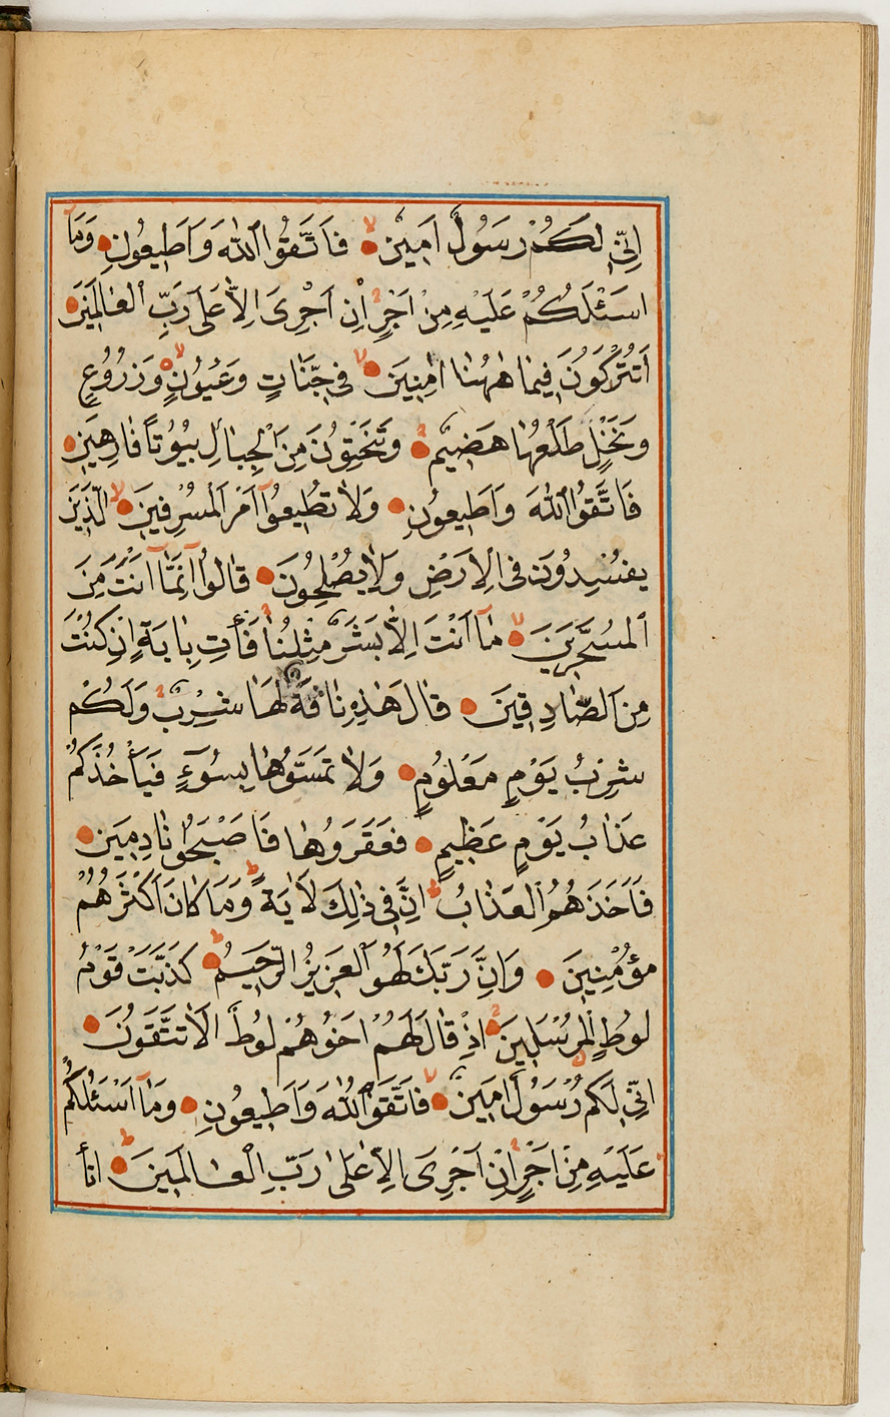 اِنّٖى لَكُمْ رَسُولٌ اَمٖينٌ فَاتَّقُوا اللّٰهَ وَاَطٖيعُونِ وَمَٓا
اَسْـَٔلُكُمْ عَلَيْهِ مِنْ اَجْرٍ اِنْ اَجْرِىَ اِلَّا عَلٰى رَبِّ الْعَالَمٖينَ
اَتُتْرَكُونَ فٖيمَا هٰهُنَا اٰمِنٖينَ فٖى جَنَّاتٍ وَعُيُونٍ وَزُرُوعٍ
وَنَخْلٍ طَلْعُهَا هَضٖيمٌ وَتَنْحِتُونَ مِنَ الْجِبَالِ بُيُوتاً فَارِهٖينَ
فَاتَّقُوا اللّٰهَ وَاَطٖيعُونِ وَلَا تُطٖيعُٓوا اَمْرَ الْمُسْرِفٖينَ اَلَّذٖينَ
يُفْسِدُونَ فِى الْاَرْضِ وَلَا يُصْلِحُونَ قَالُٓوا اِنَّمَٓا اَنْتَ مِنَ
الْمُسَحَّرٖينَ مَٓا اَنْتَ اِلَّا بَشَرٌ مِثْلُنَا فَأْتِ بِاٰيَةٍ اِنْ كُنْتَ
مِنَ الصَّادِقٖينَ قَالَ هٰذِهٖ نَاقَةٌ لَهَا شِرْبٌ وَلَكُمْ
شِرْبُ يَوْمٍ مَعْلُومٍ وَلَا تَمَسُّوهَا بِسُٓوءٍ فَيَأْخُذَكُمْ
عَذَابُ يَوْمٍ عَظٖيمٍ فَعَقَرُوهَا فَاَصْبَحُوا نَادِمٖينَ
فَاَخَذَهُمُ الْعَذَابُ اِنَّ فٖى ذٰلِكَ لَاٰيَةً وَمَا كَانَ اَكْثَرُهُمْ
مُؤْمِنٖينَ وَاِنَّ رَبَّكَ لَهُوَ الْعَزٖيزُ الرَّحٖيمُ كَذَّبَتْ قَوْمُ
لُوطٍ الْمُرْسَلٖينَ اِذْ قَالَ لَهُمْ اَخُوهُمْ لُوطٌ اَلَا تَتَّقُونَ
اِنّٖى لَكُمْ رَسُولٌ اَمٖينٌ فَاتَّقُوا اللّٰهَ وَاَطٖيعُونِ وَمَٓا اَسْـَٔلُكُمْ
عَلَيْهِ مِنْ اَجْرٍ اِنْ اَجْرِىَ اِلَّا عَلٰى رَبِّ الْعَالَمٖينَ اَتَأْ